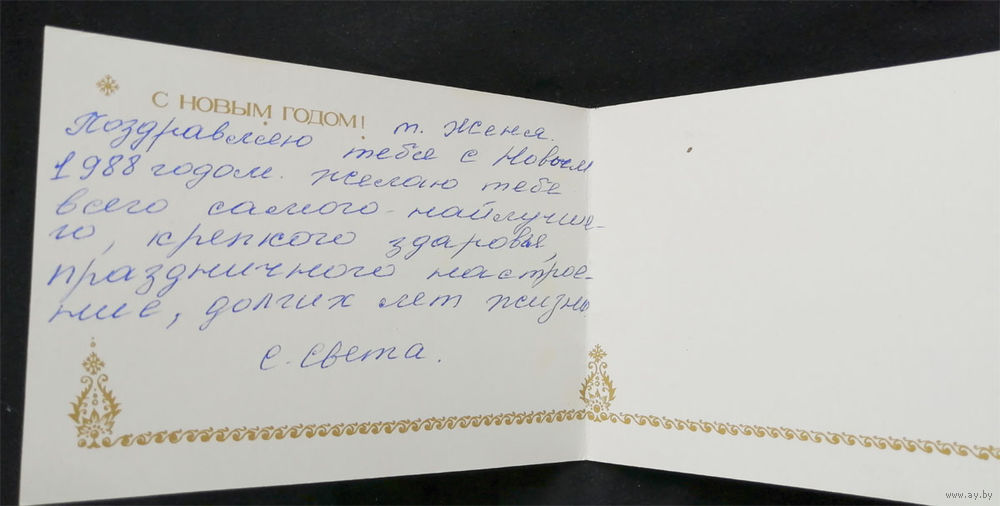 С НОВЫМ ГОДОМ!
т. Женя.
Поздравляю тебя с Новым
1988 годом. Желаю тебе
всего самого-найлучше-
го, крепкого здаровья,
праздничного настрое-
ние, долгих лет жизни
с. Света.
www.ay.by